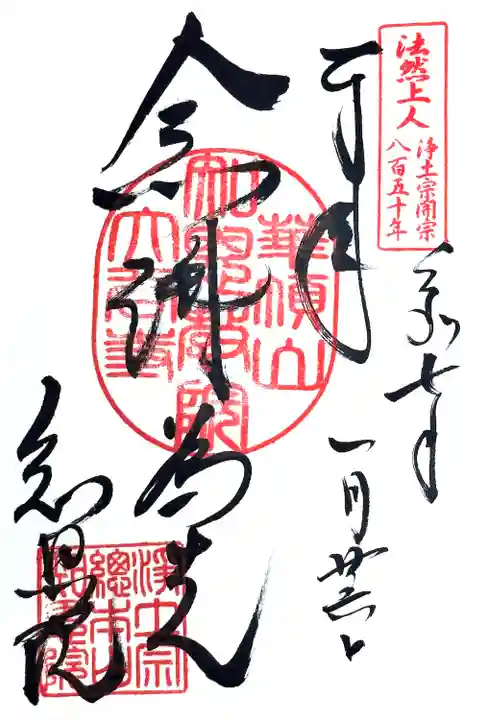 法然上人
浄土宗開宗
八百五十年
令和七年
華頂山
知恩教院
大谷寺
念佛為先
知恩院
浄土宗
總本山
知恩院